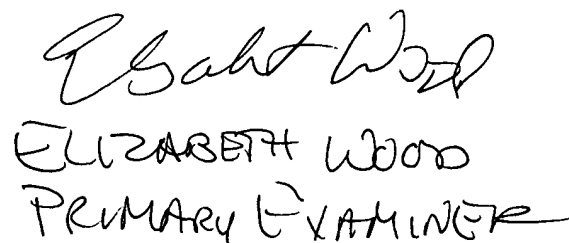 Elizabeth Wood
ELIZABETH WOOD
PRIMARY EXAMINER